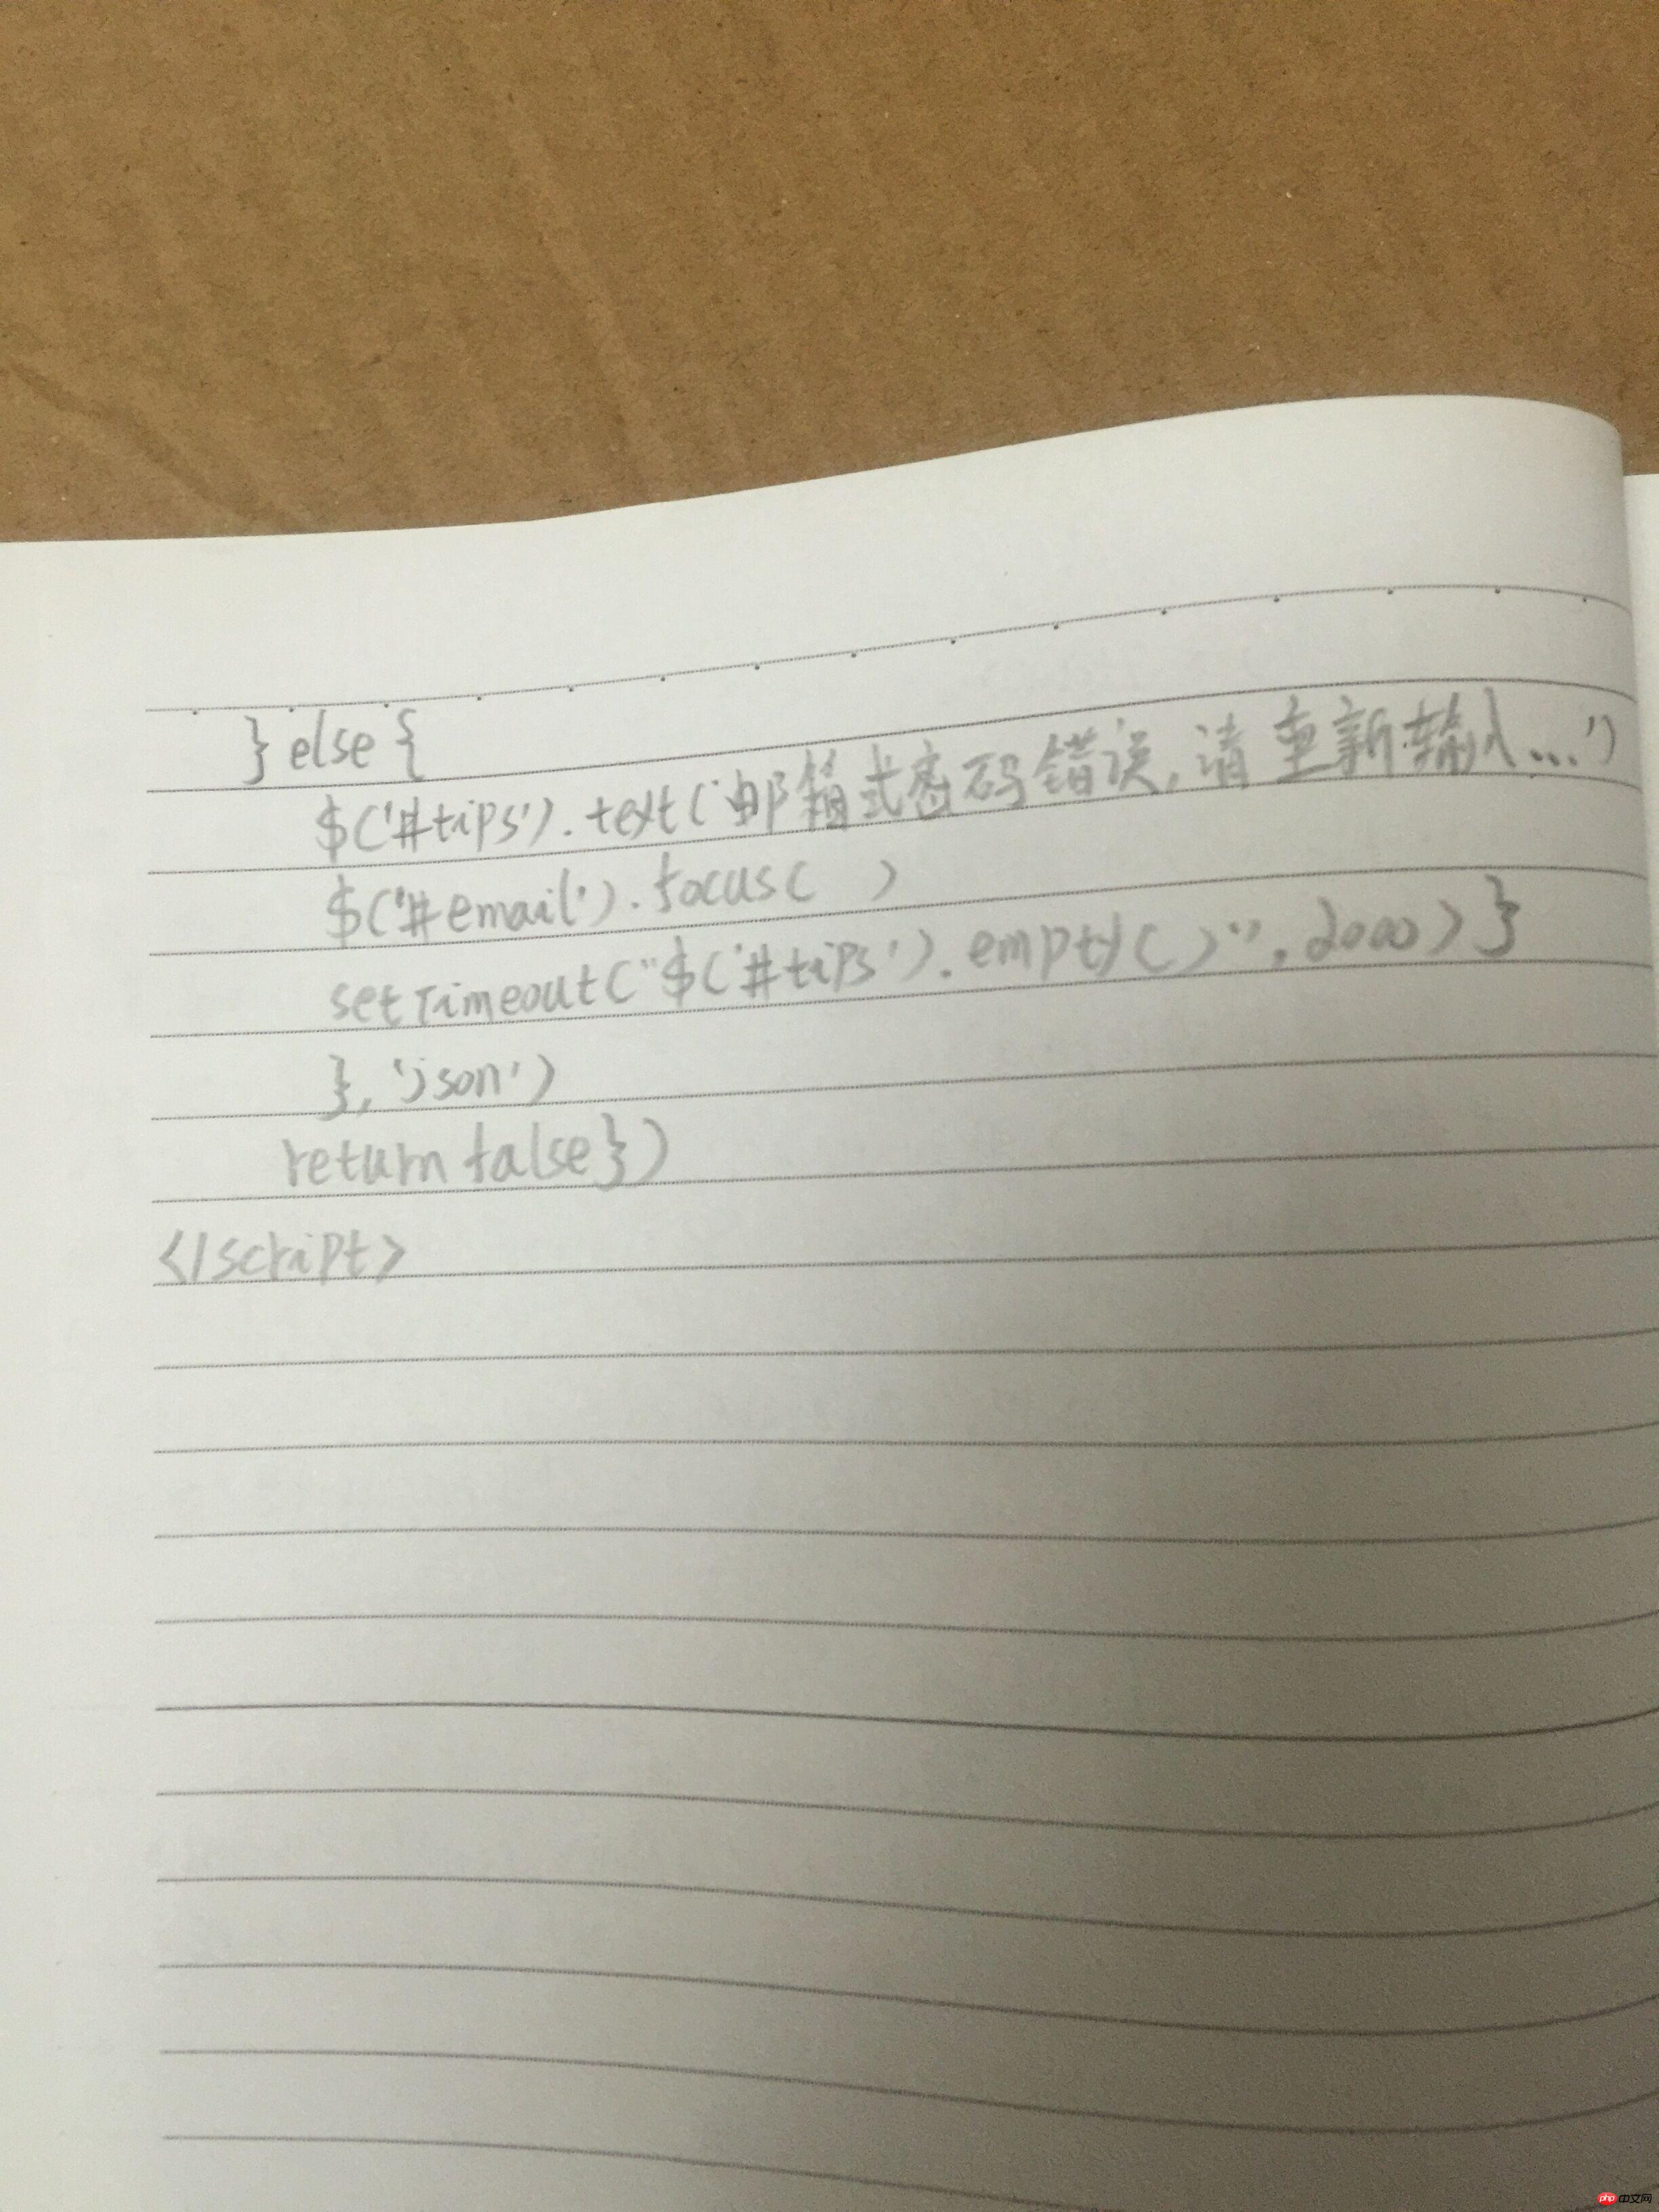 } else {
$('#tips').text('邮箱或密码错误,请重新输入...')
$('#email').focus( )
setTimeout("$('#tips').empty( )",2000) }
},'json')
return false})
</script>
php 中文网